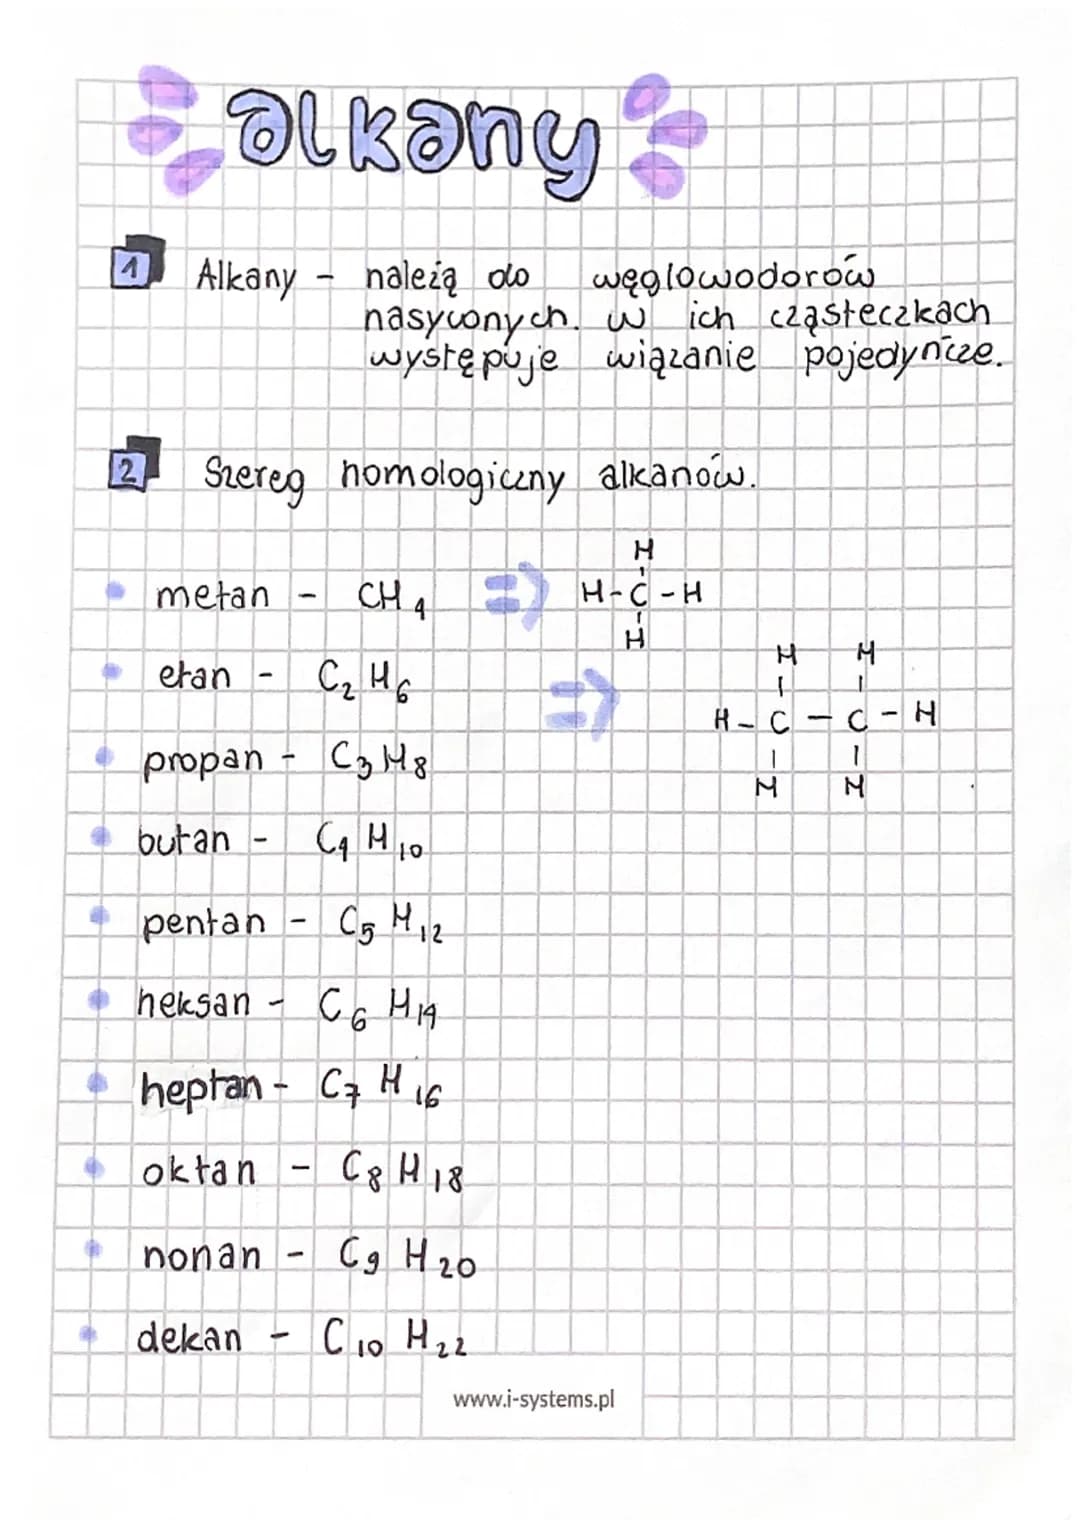 alkany
1 Alkany - należą do węglowodorów
nasyconych. w ich cząsteczkach
występuje wiązanie pojedyńcze.
2 Szereg homologiczny alkanów.
H
metan - CH4 => H-C-H
H
H H
etan - C2H6 => H-C-C-H
H H
propan - C3H8
butan - C4H10
pentan - C5H12
heksan - C6H14
heptan - C7H16
oktan - C8H18
nonan - C9H20
dekan - C10H22
www.i-systems.pl